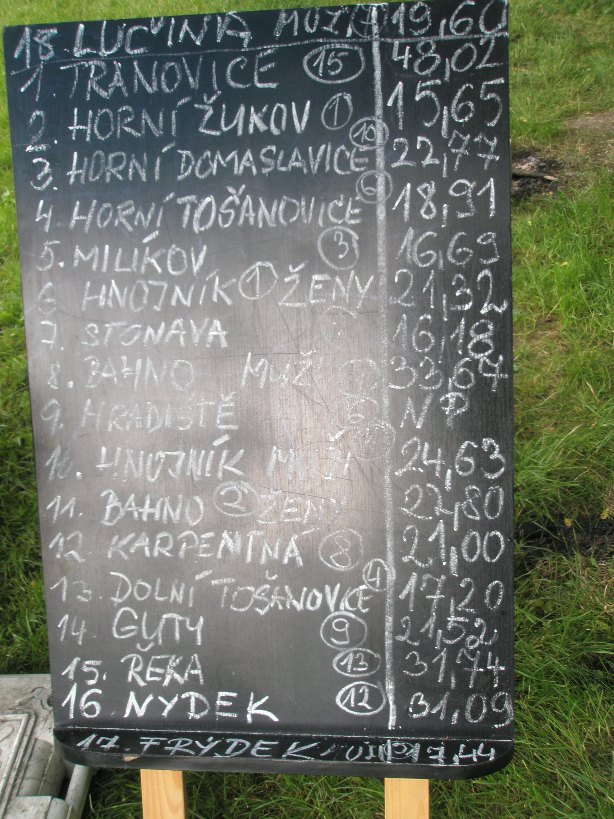 18 LUČINA MUŽI 7 19,60
1. TRANOVICE 15 48,02
2. HORNÍ ŽUKOV 1 15,65
3. HORNÍ DOMASLAVICE 10 22,77
4. HORNÍ TOŠANOVICE 6 18,91
5. MILÍKOV 3 16,69
6 HNOJNÍK 1 ŽENY 21,32
7. STONAVA 16,18
8. BAHNO MUŽI 33,67
9. HRADIŠTĚ NP
10. HNOJNÍK MUŽI 24,63
11. BAHNO 2 ŽENY 22,80
12. KARPENTNÁ 8 21,00
13. DOLNÍ TOŠANOVICE 4 17,20
14. GUTY 9 21,52
15. ŘEKA 13 31,74
16 NÝDEK 12 31,09
17. FRÝDEK 17,44